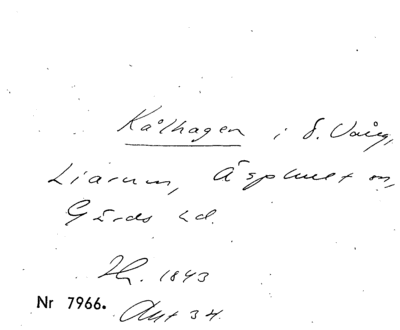 Kålhagen i S. Vång,
Liarum, Äsphult sn,
Gärds hd.
Hr. 1843
Nr 7966. Akt 34.